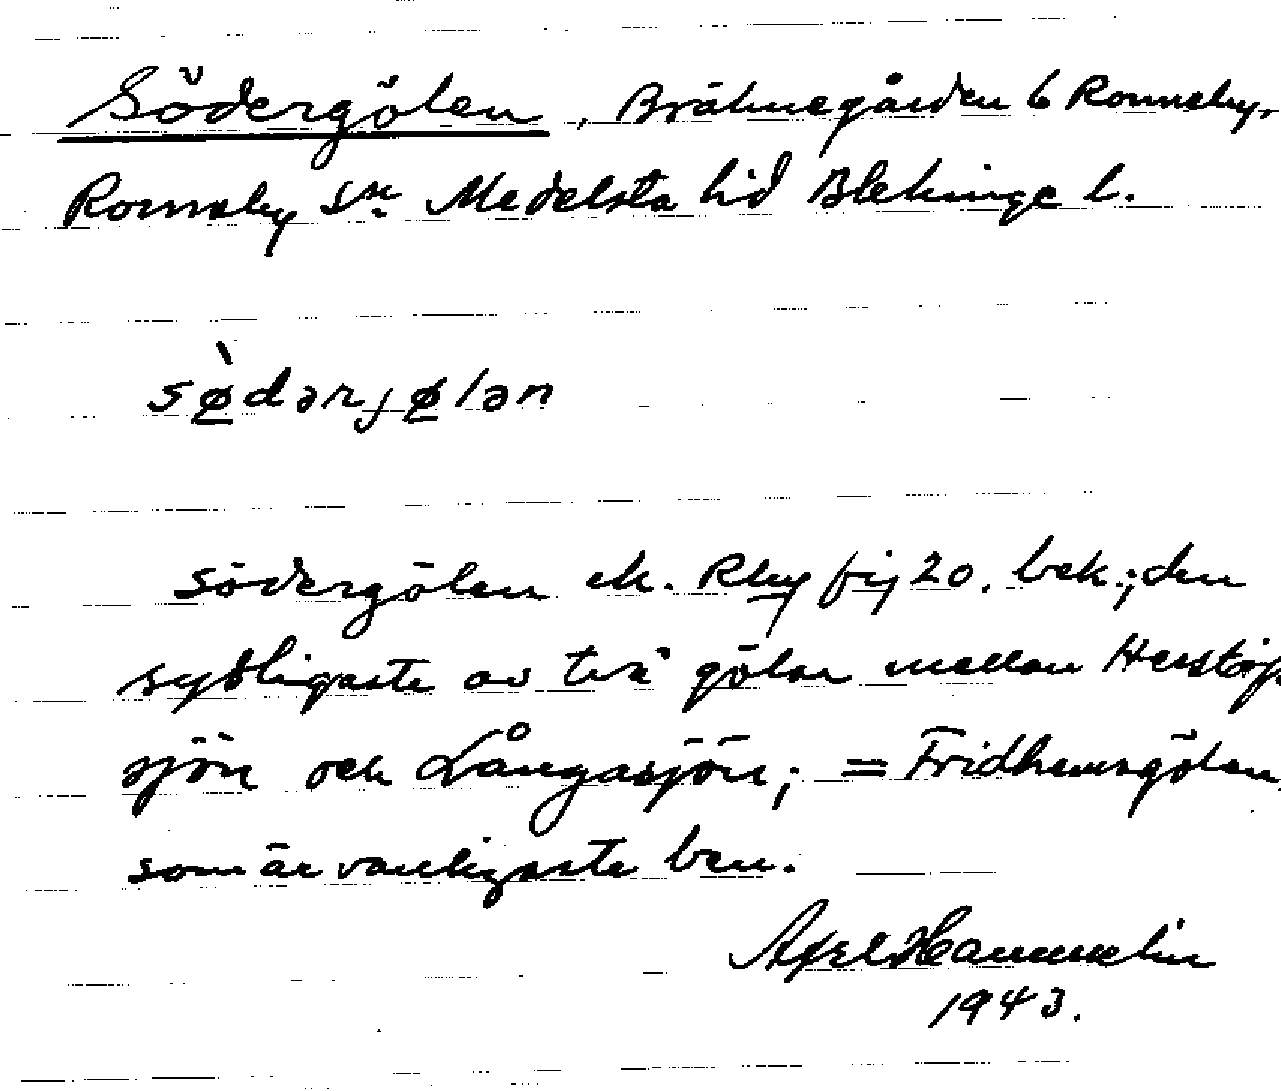 Södergölen, Brähnegården 6 Ronneby,
Ronneby sn Medelsta hd Blekinge l.
sø̀dərjølən
Södergölen ek. Rby fij 20. bek.; den
sydligaste av två gölar mellan Herstöp
sjön och Långasjön; = Fridhemsgölen,
som är vanligaste ben.
Axel Hammelin
1943.